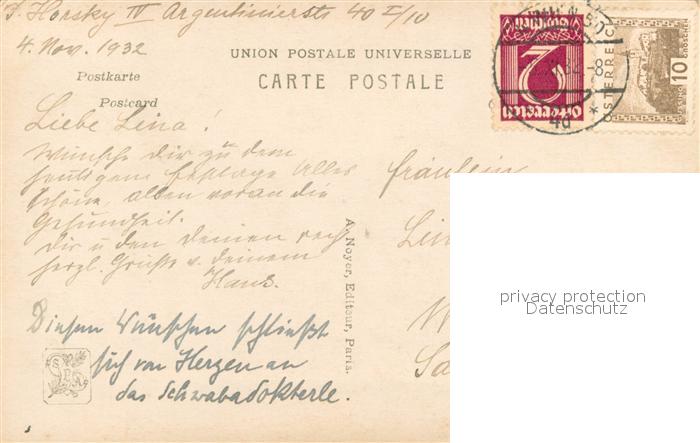 J. Horsky IV Argentinierstr 40 I/10
4. Nov. 1932
UNION POSTALE UNIVERSELLE
CARTE POSTALE
Postkarte
Postcard
Liebe Lina!
Wünsche dir zu dem
heutigen Festtage Alles
Schöne, allen voran die
Gesundheit.
Dir u den deinen recht
herzl. Grüße v. deinem
Hans.
Diesen Wünschen schließt
sich von Herzen an
das Schwabadokterle.
A. Noyer, Editeur, Paris.
2
ÖSTERREICH
10
GROSCHEN
-8
4d *
Fräulein
Lin
privacy protection
Datenschutz